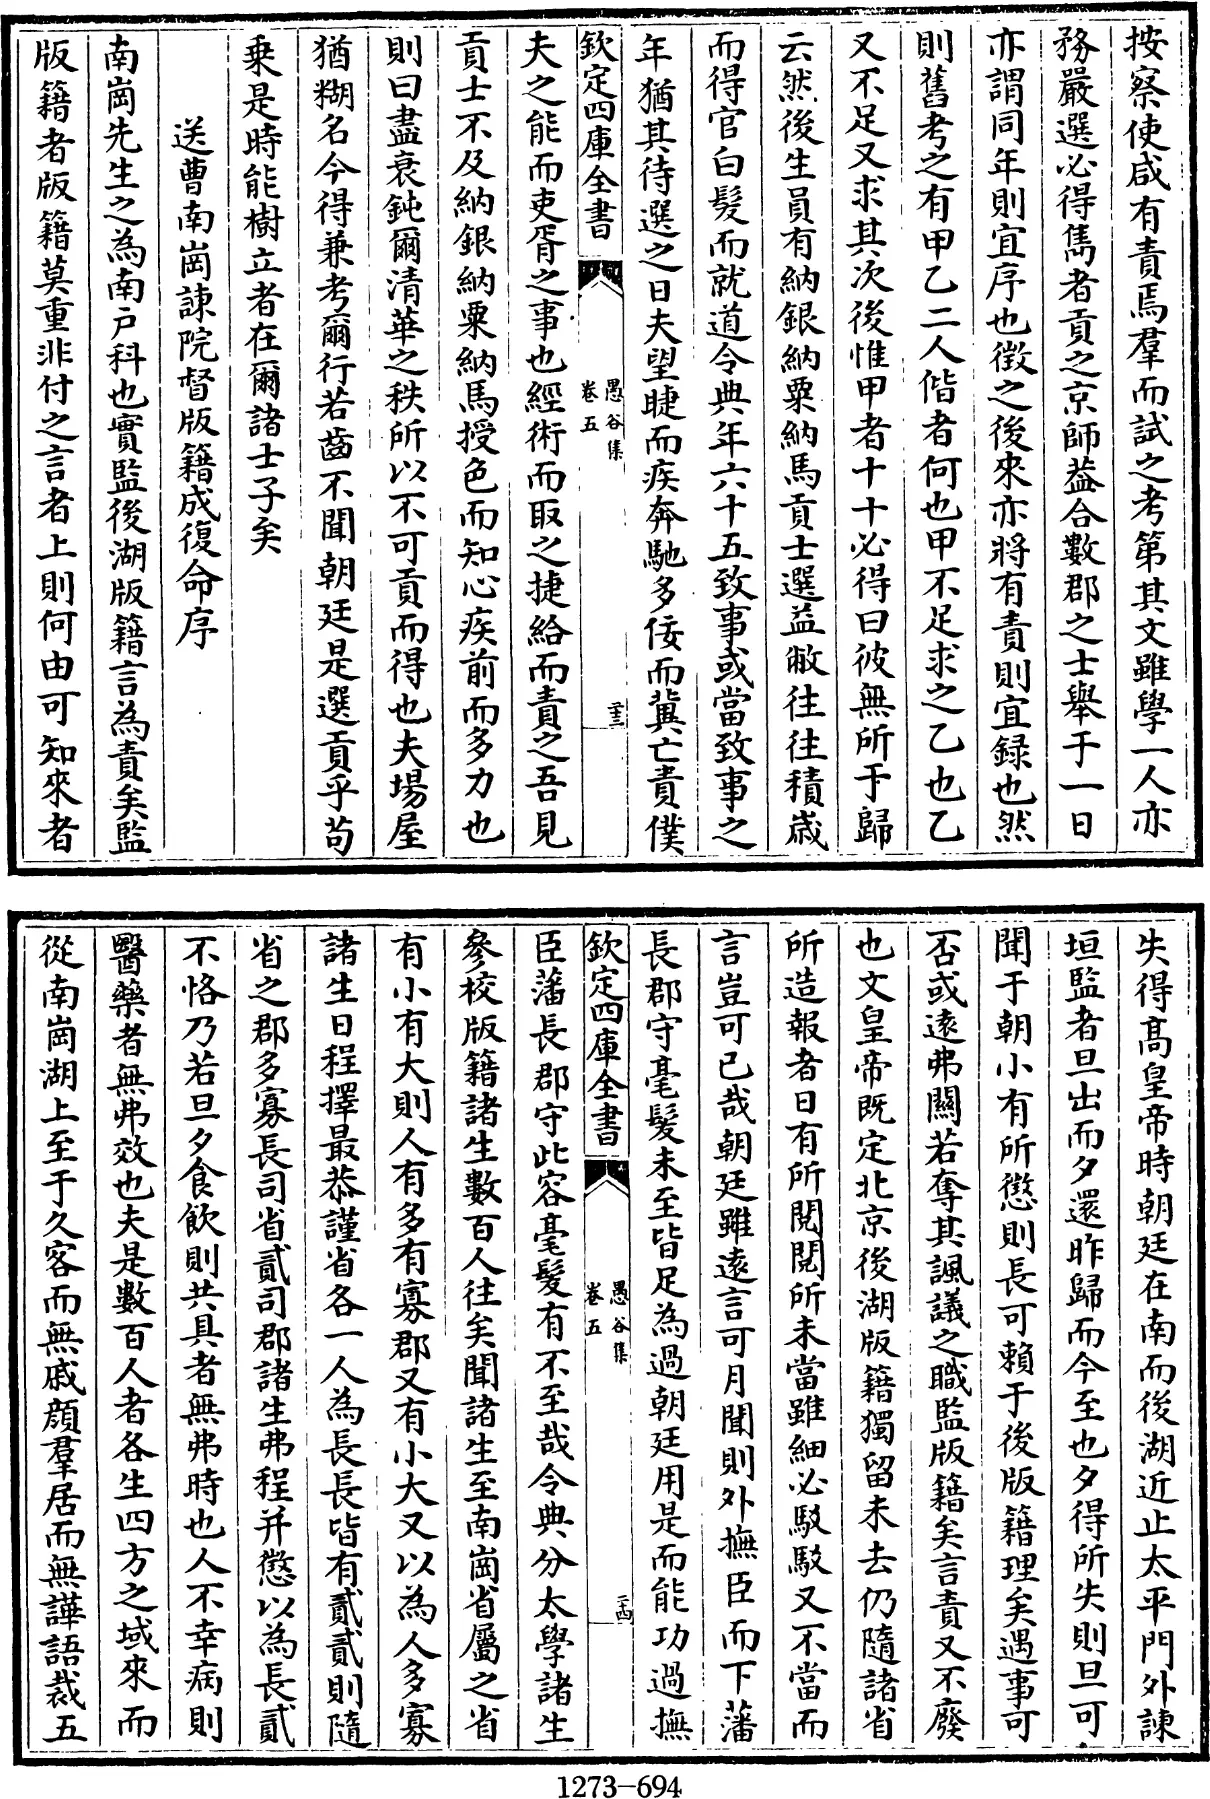 按察使咸有責焉羣而試之考第其文雖學一人亦
務嚴選必得雋者貢之京師葢合數郡之士舉于一日
亦謂同年則宜序也徵之後來亦將有責則宜録也然
則舊考之有甲乙二人偕者何也甲不足求之乙也乙
又不足又求其次後惟甲者十十必得曰彼無所于歸
云然後生員有納銀納粟納馬貢士選益敝往往積歲
而得官白髮而就道令典年六十五致事或當致事之
年猶其待選之日夫望睫而疾奔馳多佞而冀亡責僕
欽定四庫全書
愚谷集
卷五
二十三
夫之能而吏胥之事也經術而取之捷給而責之吾見
貢士不及納銀納粟納馬授色而知心疾前而多力也
則曰盡衰鈍爾清華之秩所以不可貢而得也夫場屋
猶糊名今得兼考爾行若齒不聞朝廷是選貢乎苟
乗是時能樹立者在爾諸士子矣
送曹南崗諫院督版籍成復命序
南崗先生之為南戸科也實監後湖版籍言為責矣監
版籍者版籍莫重非付之言者上則何由可知來者
失得髙皇帝時朝廷在南而後湖近止太平門外諫
垣監者旦出而夕還昨歸而今至也夕得所失則旦可
聞于朝小有所懲則長可賴于後版籍理矣遇事可
否或遠弗闗若奪其諷議之職監版籍矣言責又不廢
也文皇帝既定北京後湖版籍獨留未去仍隨諸省
所造報者日有所閱閱所未當雖細必駁駁又不當而
言豈可已哉朝廷雖遠言可月聞則外撫臣而下藩
長郡守毫髮未至皆足為過朝廷用是而能功過撫
欽定四庫全書
愚谷集
卷五
二十四
臣藩長郡守此容毫髮有不至哉令典分太學諸生
參校版籍諸生數百人往矣聞諸生至南崗省屬之省
有小有大則人有多有寡郡又有小大又以為人多寡
諸生日程擇最恭謹省各一人為長長皆有貳貳則隨
省之郡多寡長司省貳司郡諸生弗程并懲以為長貳
不恪乃若旦夕食飲則共具者無弗時也人不幸病則
醫藥者無弗效也夫是數百人者各生四方之域來而
從南崗湖上至于久客而無戚顔羣居而無譁語裁五
1273-694